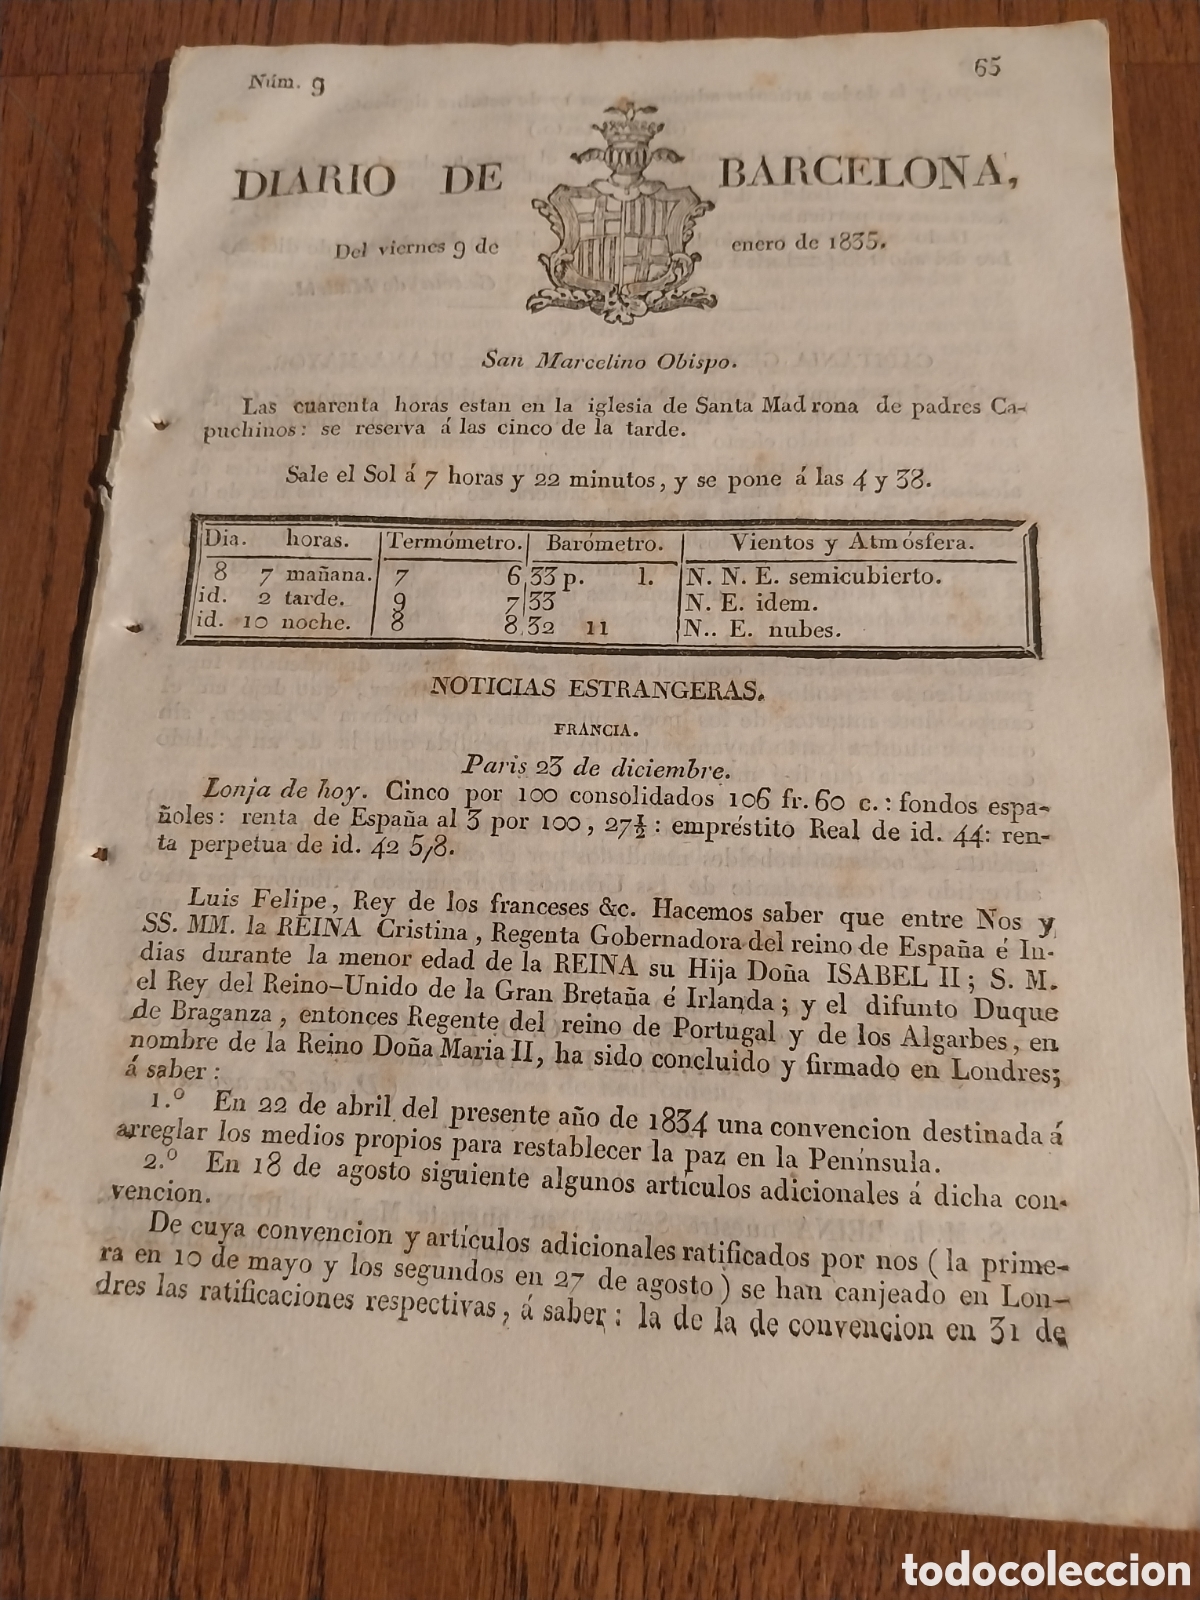 Núm. 9
65
DIARIO DE BARCELONA,
Del viernes 9 de enero de 1835.
San Marcelino Obispo.
Las cuarenta horas estan en la iglesia de Santa Madrona de padres Ca-
puchinos: se reserva á las cinco de la tarde.
Sale el Sol á 7 horas y 22 minutos, y se pone á las 4 y 38.
Dia. horas. Termómetro. Barómetro. Vientos y Atmósfera.
8 7 mañana. 7 6 33 p. l. N. N. E. semicubierto.
id. 2 tarde. 9 7 33 N. E. idem.
id. 10 noche. 8 8 32 11 N.. E. nubes.
NOTICIAS ESTRANGERAS.
FRANCIA.
Paris 23 de diciembre.
Lonja de hoy. Cinco por 100 consolidados 106 fr. 60 c.: fondos espa-
ñoles: renta de España al 3 por 100, 27½: empréstito Real de id. 44: ren-
ta perpetua de id. 42 5/8.
Luis Felipe, Rey de los franceses &c. Hacemos saber que entre Nos y
SS. MM. la REINA Cristina, Regenta Gobernadora del reino de España é In-
dias durante la menor edad de la REINA su Hija Doña ISABEL II; S. M.
el Rey del Reino-Unido de la Gran Bretaña é Irlanda; y el difunto Duque
de Braganza, entonces Regente del reino de Portugal y de los Algarbes, en
nombre de la Reino Doña Maria II, ha sido concluido y firmado en Londres;
á saber:
1.º En 22 de abril del presente año de 1834 una convencion destinada á
arreglar los medios propios para restablecer la paz en la Península.
2.º En 18 de agosto siguiente algunos artículos adicionales á dicha con-
vencion.
De cuya convencion y artículos adicionales ratificados por nos (la prime-
ra en 10 de mayo y los segundos en 27 de agosto) se han canjeado en Lon-
dres las ratificaciones respectivas, á saber: la de la de convencion en 31 de
todocoleccion